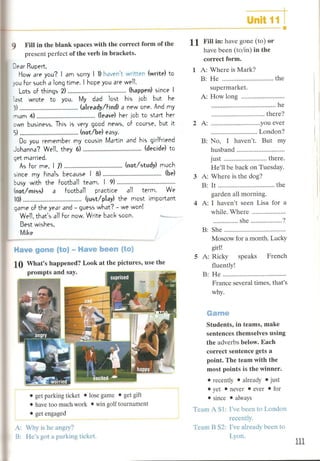 Unit 11
9 Fill in the blank spaces with the correct form of the
present perfect of the verb in brackets.
Dear Rupert,
How are you? I am sorry I 1) haven't written (write) to
you for such a long time. I hope you are well.
Lots of things 2) ........................ (happen) since I
last wrote to you. My dad lost his job but he
3) ........................ (already/find) a new one. And my
mum 4) ........................ (leave) her job to start her
own business. This is very good news, of course, but it
5) ........................ (not/be) easy.
Do you remember my cousin Martin and his girlfriend
Johanna? Well, they 6) ........................ (decide) to
get married.
As for me, I 7) ........................ (not/study) much
since my finals because I 8) ........................ (be)
busy with the football team. I 9) ........................
(not/miss) a football practice all term. We
10) ........................ (just/play) the most important
game of the year and - guess what? - we won!
Well, that's all for now. Write back soon.
Best wishes,
Mike
Have gone (to) - Have been (to)
10 What's happened? Look at the pictures, use the
prompts and say.
suprised
angry
happy
worried
excited
• get parking ticket • lose game • get gift
• have too much work • win golf tournament
• get engaged
A: Why is he angry?
B: He's got a parking ticket.
11 Fill in: have gone (to) or
have been (to/in) in the
correct form.
1 A: Where is Mark?
B: He ........................ the
supermarket.
A: How long ........................
........................ he
........................ there?
2 A: ........................ you ever
........................ London?
B: No, I haven't. But my
husband ........................
just ........................ there.
He'll be back on Tuesday.
3 A: Where is the dog?
B: It ........................ the
garden all morning.
4 A: I haven't seen Lisa for a
while. Where ........................
............ she ............?
B: She ........................
Moscow for a month. Lucky
girl!
5 A: Ricky speaks French
fluently!
B: He ........................
France several times, that's
why.
Game
Students, in teams, make
sentences themselves using
the adverbs below. Each
correct sentence gets a
point. The team with the
most points is the winner.
• recently • already • just
• yet • never • ever • for
• since • always
Team A S1: I've been to London
recently.
Team B S2: I've already been to
Lyon.
111